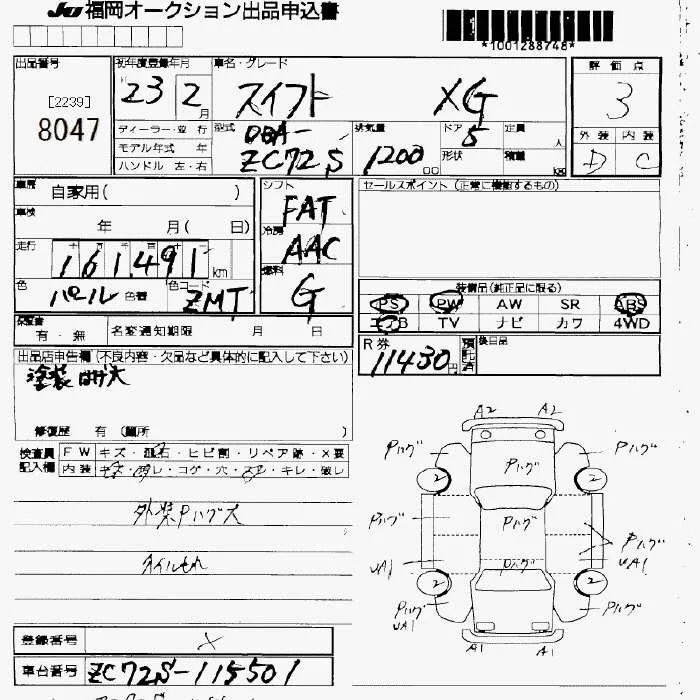 JU 福岡オークション出品申込書
*1001288748*
出品番号
[2239]
8047
初年度登録年月
23 2月
車名・グレード
スイフト XG
評価点
3
外装 内装
D C
ディーラー・並行
モデル年式 年
ハンドル 左・右
型式
DBA-
ZC72S
排気量
1200 cc
ドア 5
形状
定員 人
積載 kg
車歴
自家用( )
車検
年 月( 日)
走行
161,491 km
色
パール 色番
色コード
ZMT
シフト
FAT
冷房
AAC
燃料
G
セールスポイント(正常に機能するもの)
装備品(純正品に限る)
PS PW AW SR ABS
エアB TV ナビ カワ 4WD
保証書
有・無
名変通知期限 月 日
R券
11430円
預託済
後日品
出品店申告欄(不良内容・欠品など具体的に記入して下さい)
塗装はげ大
修復歴 有(箇所 )
検査員
記入欄
FW キズ・飛石・ヒビ割・リペア跡・X要
内装 キズ・汚レ・コゲ・穴・スレ・キレ・破レ
外装Pハゲ大
オイルもれ
A2 A2
Pハゲ Pハゲ Pハゲ
2 2
Pハゲ Pハゲ Pハゲ
UA1 Pハゲ UA1
2 2
Pハゲ Pハゲ
UA1
A1 A1
登録番号 ×
車台番号 ZC72S-115501